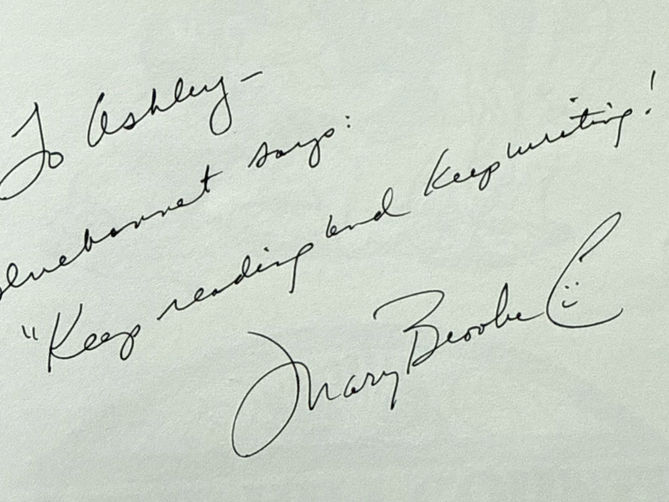 To Ashley –
Bluebonnet says:
"Keep reading and keep writing!
Mary Brooke C